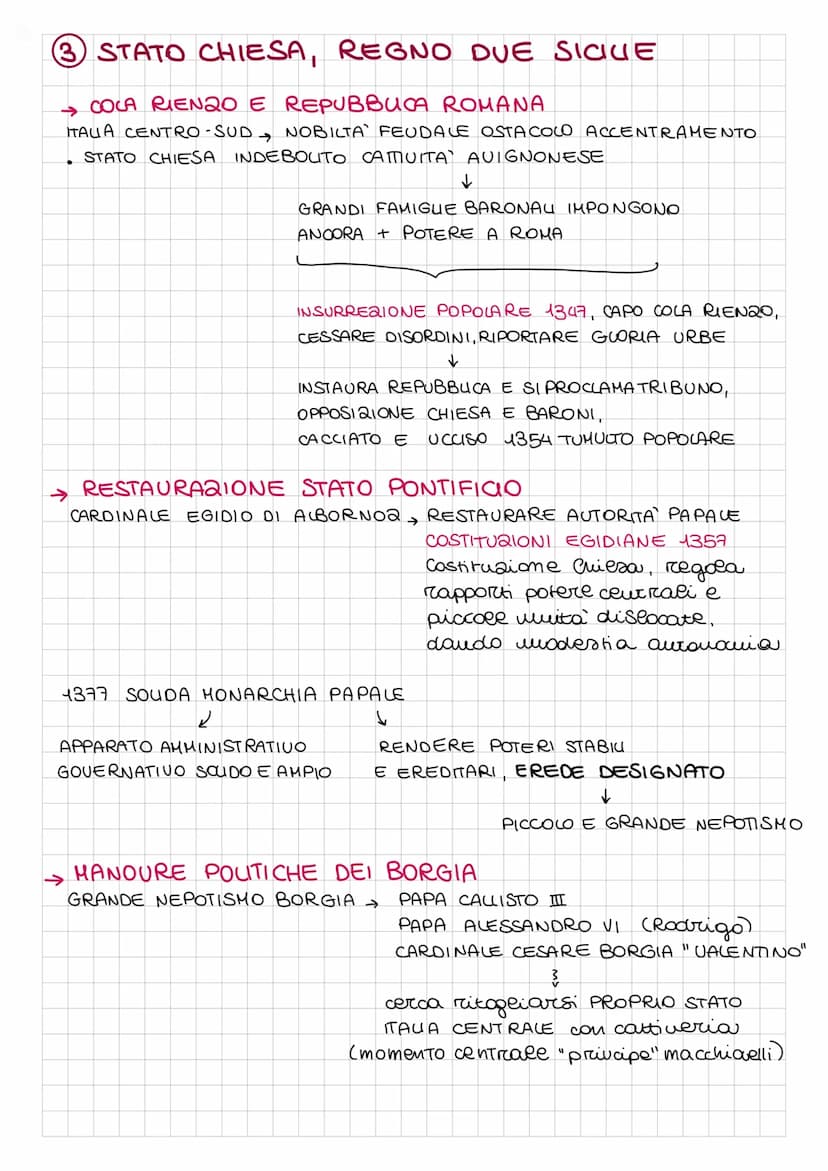 ③ STATO CHIESA, REGNO DUE SICILIE
→ COLA RIENZO E REPUBBLICA ROMANA
ITALIA CENTRO-SUD → NOBILTA' FEUDALE OSTACOLO ACCENTRAMENTO
• STATO CHIESA INDEBOLITO CATTIVITA' AVIGNONESE
↓
GRANDI FAMIGLIE BARONALI IMPONGONO
ANCORA + POTERE A ROMA
INSURREZIONE POPOLARE 1347, CAPO COLA RIENZO,
CESSARE DISORDINI, RIPORTARE GLORIA URBE
↓
INSTAURA REPUBBLICA E SI PROCLAMA TRIBUNO,
OPPOSIZIONE CHIESA E BARONI,
CACCIATO E UCCISO 1354 TUMULTO POPOLARE
→ RESTAURAZIONE STATO PONTIFICIO
CARDINALE EGIDIO DI ALBORNOZ → RESTAURARE AUTORITA' PAPALE
COSTITUZIONI EGIDIANE 1357
Costituzione Chiesa, regola
rapporti potere centrali e
piccole unità dislocate,
dando modestia autonomia
1377 SOLIDA MONARCHIA PAPALE
↙ ↘
APPARATO AMMINISTRATIVO RENDERE POTERI STABILI
GOVERNATIVO SOLIDO E AMPIO E EREDITARI, EREDE DESIGNATO
↓
PICCOLO E GRANDE NEPOTISMO
→ MANOVRE POLITICHE DEI BORGIA
GRANDE NEPOTISMO BORGIA → PAPA CALLISTO III
PAPA ALESSANDRO VI (Rodrigo)
CARDINALE CESARE BORGIA "VALENTINO"
cerca ritagliarsi PROPRIO STATO
ITALIA CENTRALE con cattiveria
(momento centrale "principe" macchiavelli)